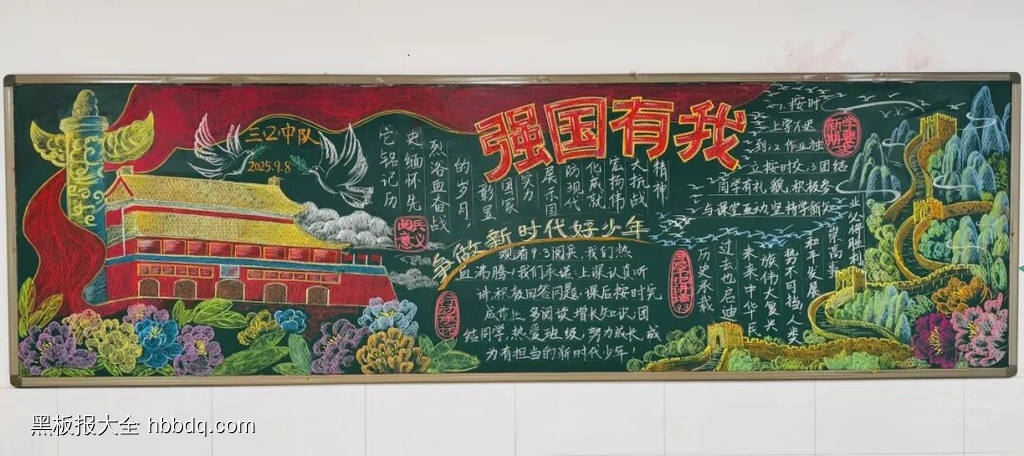 强国有我
三2中队
2025.9.8
争做新时代好少年
观看9.3阅兵，我们热
血沸腾！我们承诺：上课认真听
讲，积极回答问题，课后按时完
成作业，多阅读，增长知识，团
结同学，热爱班级，努力成长，成
为有担当的新时代少年！
精神
大抗战
宏扬伟
化成就
的现代
展示国
实力
国家
彰显
的岁月，
烈浴血奋战
史缅怀先
它铭记历
阅兵
意义
1.按时
上学不迟
到，2.作业独
立按时交，3.团结
同学有礼貌，积极参
与课堂互动坚持学新知
业必将胜利
崇高事
和平发展
势不可挡，人类
族伟大复兴
未来，中华民
过去也启迪
历史承载
黑板报大全 hbbdq.com